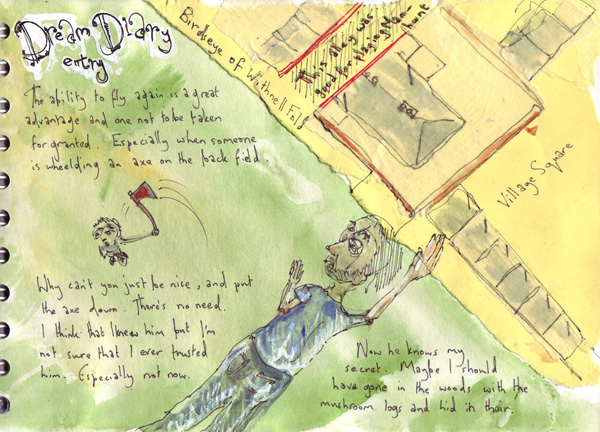 Dream Diary
entry
The ability to fly again is a great
advantage and one not to be taken
for granted. Especially when someone
is wheelding an axe on the back field.
Why can't you just be nice, and put
the axe down. There's no need.
I think that I knew him but I'm
not sure that I ever trusted
him. Especially not now.
Birdseye of Withnell Fold
This Alley was
good for playing Man-
hunt
Village Square
Now he knows my
secret. Maybe I should
have gone in the woods with the
mushroom logs and hid in their.